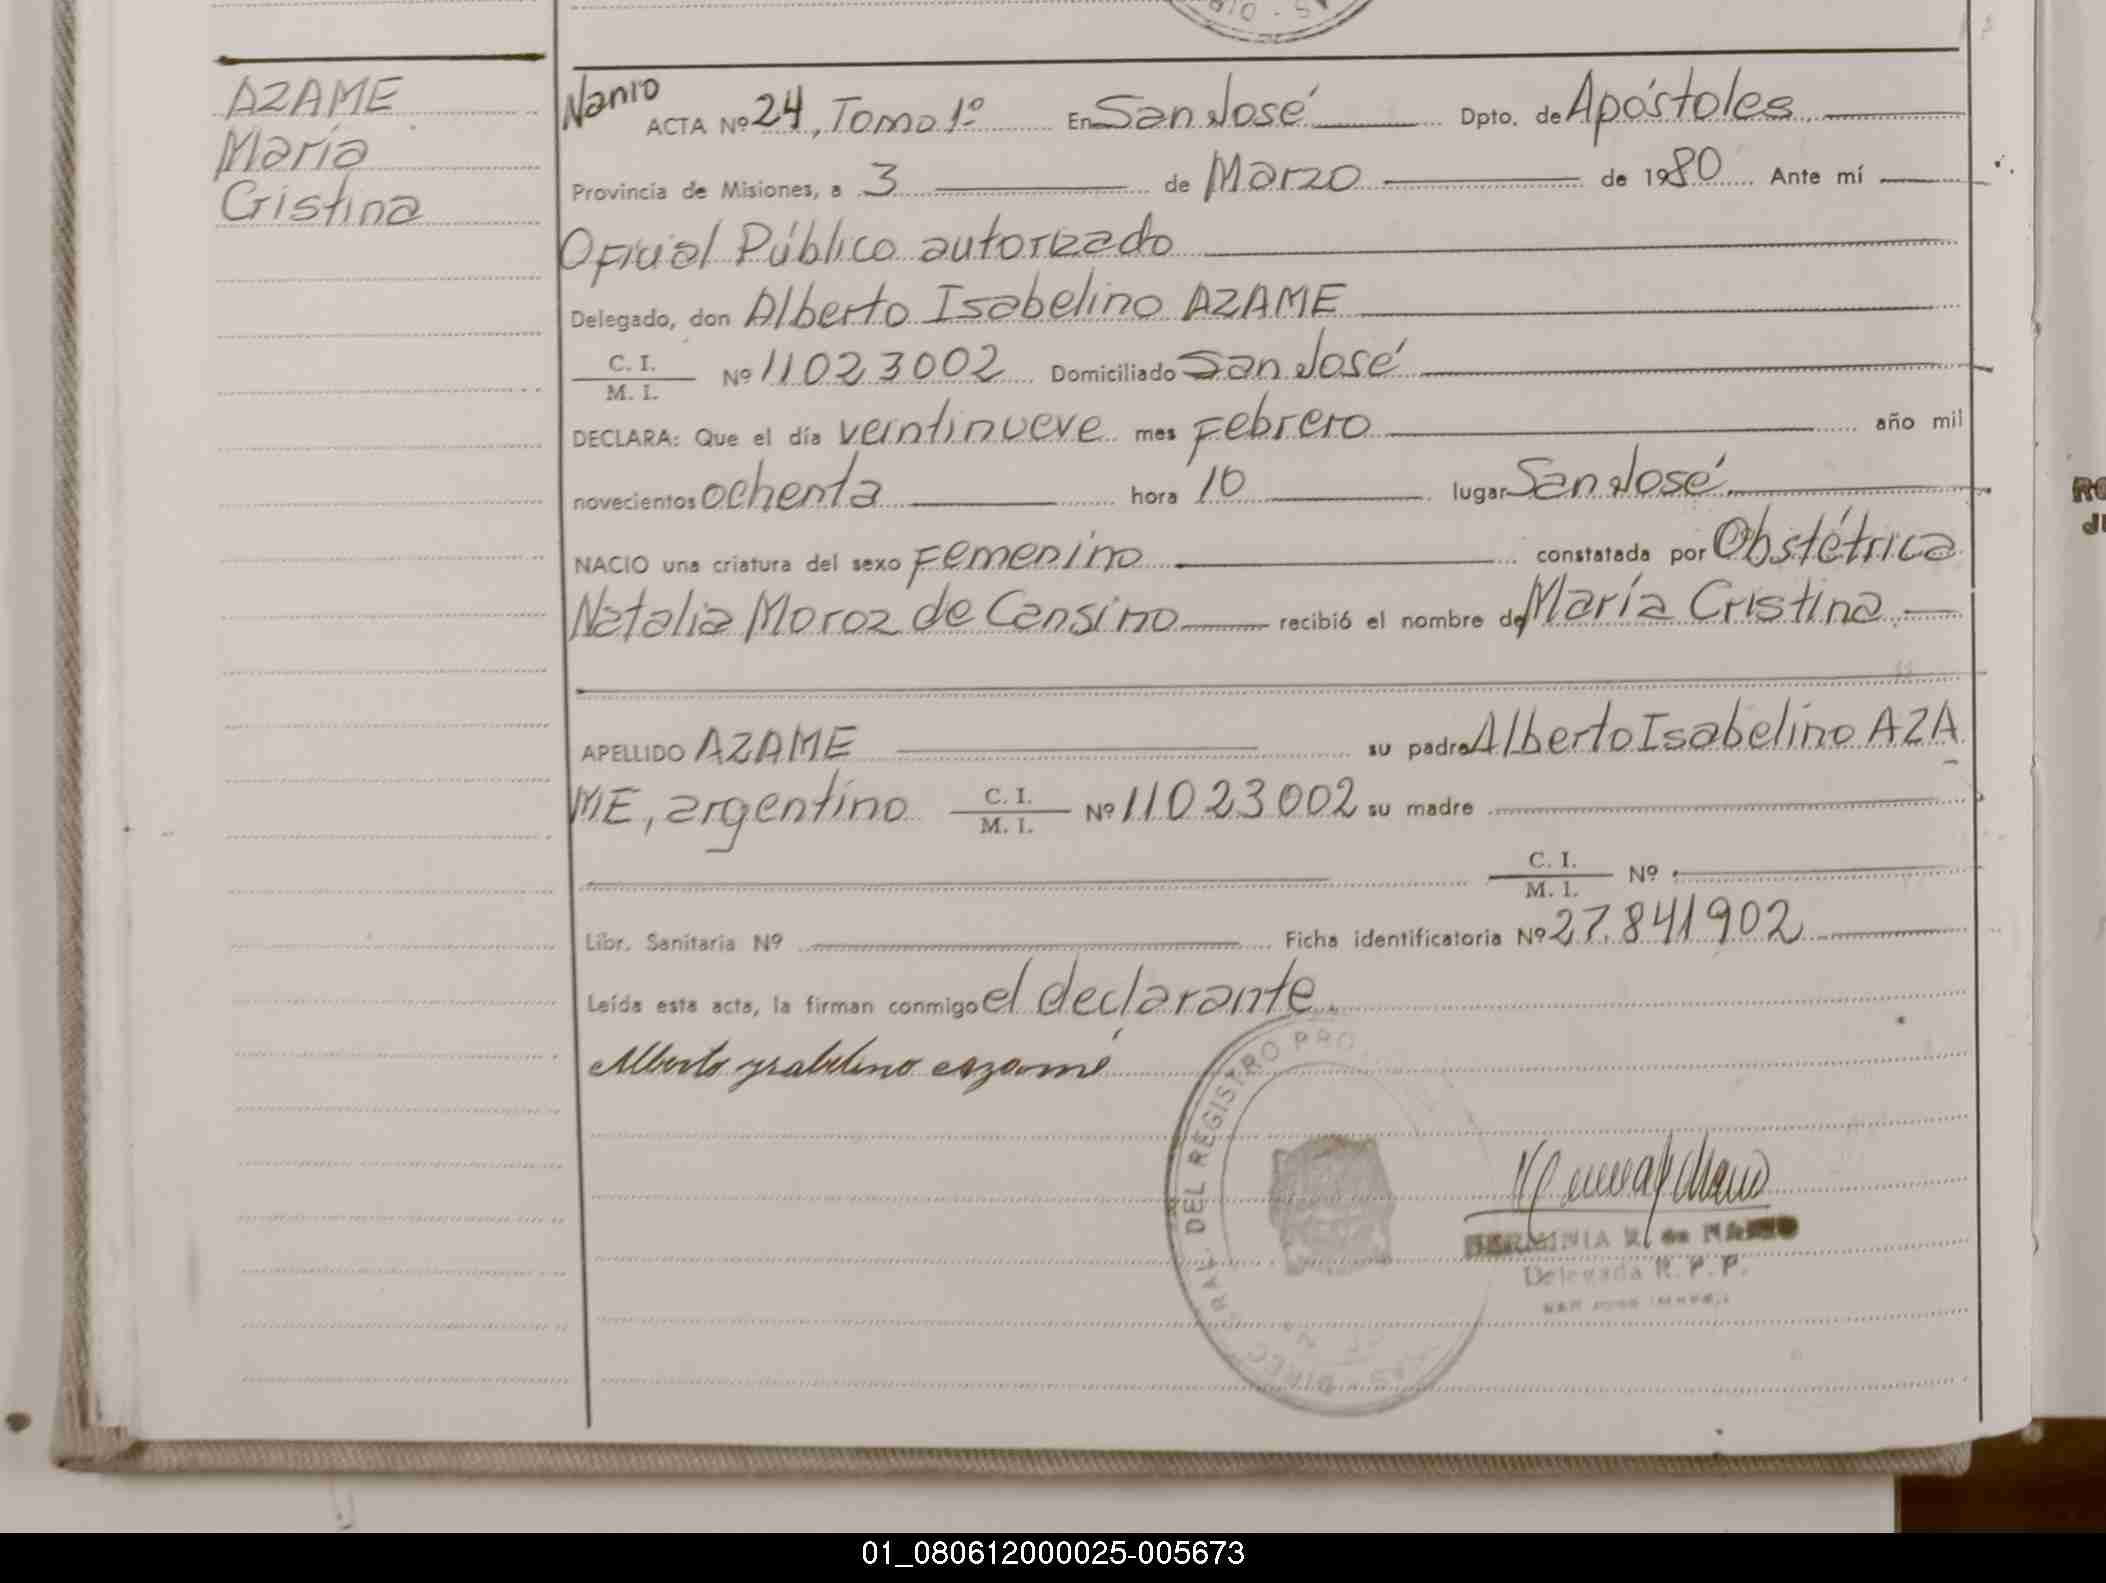 AZAME
María
Cristina
Nanio
ACTA Nº 24, Tomo 1º En San José Dpto. de Apóstoles
Provincia de Misiones, a 3 de Marzo de 1980 Ante mí
Oficial Público autorizado
Delegado, don Alberto Isabelino AZAME
C. I.
M. I. Nº 11023002 Domiciliado San José
DECLARA: Que el día veintinueve mes Febrero año mil
novecientos ochenta hora 10 lugar San José
NACIO una criatura del sexo Femenino constatada por Obstétrica
Natalia Moroz de Cansino recibió el nombre de María Cristina.
APELLIDO AZAME su padre Alberto Isabelino AZA
ME, argentino C. I. M. I. Nº 11023002 su madre
C. I. M. I. Nº
Libr. Sanitaria Nº Ficha identificatoria Nº 27.841902
Leída esta acta, la firman conmigo el declarante.
Alberto ysabelino azamé
DEL REGISTRO PRO
Delegada R. P. P.
01_080612000025-005673